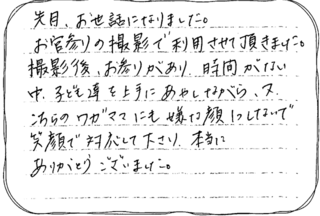 先日、お世話になりました。
お宮参りの撮影で利用させて頂きました。
撮影後、お参りがあり、時間がない
中、子ども達を上手にあやしながら、又、
こちらのワガママにも嫌な顔1つしないで
笑顔で対応して下さり、本当に
ありがとうございました。